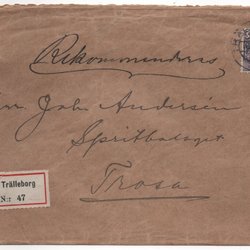 Rekommenderas
Herr Joh. Andersén
Spritbolaget
Trosa
Trälleborg
N:r 47